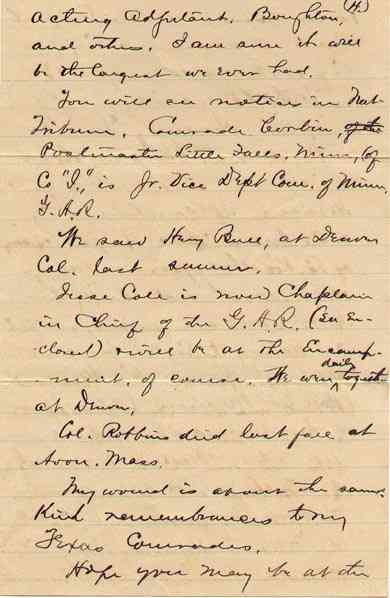 (4.)
Acting Adjutant. Boughton,
and others. I am sure it will
be the largest we ever had.
You will see notice in Nat
Tribune, Comrade Corbin, of the
Postmaster Little Falls, Minn, (of
Co "I", is Jr. Vice Dep't Com. of Minn,
G.A.R.
We saw Harry Buell, at Denver
Col. last summer.
Jesse Cole is now Chaplain
in Chief of the G.A.R. (See En-
closed) & will be at the Encamp-
ment, of course. We were daily together
at Denver,
Col. Robbins died last fall at
Avon. Mass.
My wound is about the same.
Kind remembrances to my
Texas Comrades.
Hope you may be at the